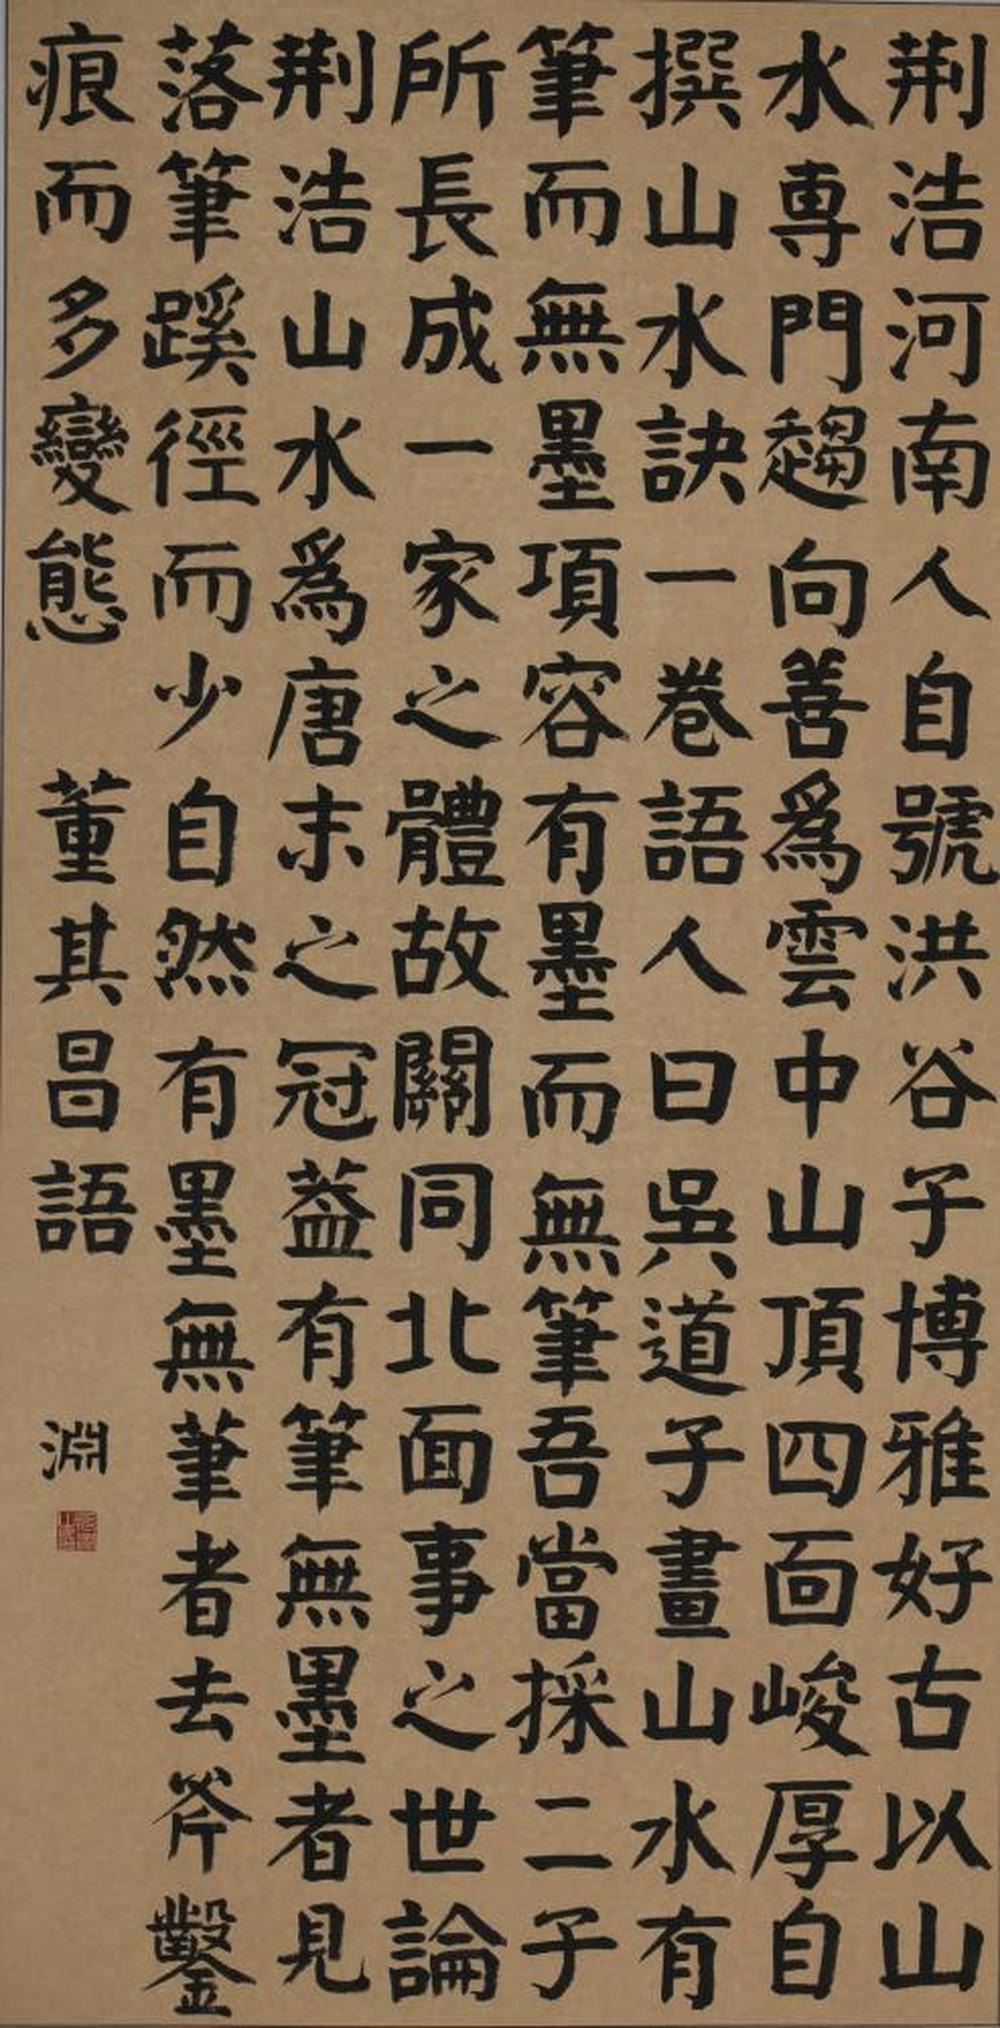 荆浩河南人自號洪谷子博雅好古以山
水専門趨向善爲雲中山頂四面峻厚自
撰山水訣一卷語人曰吳道子畫山水有
筆而無墨項容有墨而無筆吾當採二子
所長成一家之體故關同北面事之世論
荆浩山水爲唐末之冠葢有筆無墨者見
落筆蹊徑而少自然有墨無筆者去斧鑿
痕而多變態 董其昌語
淵